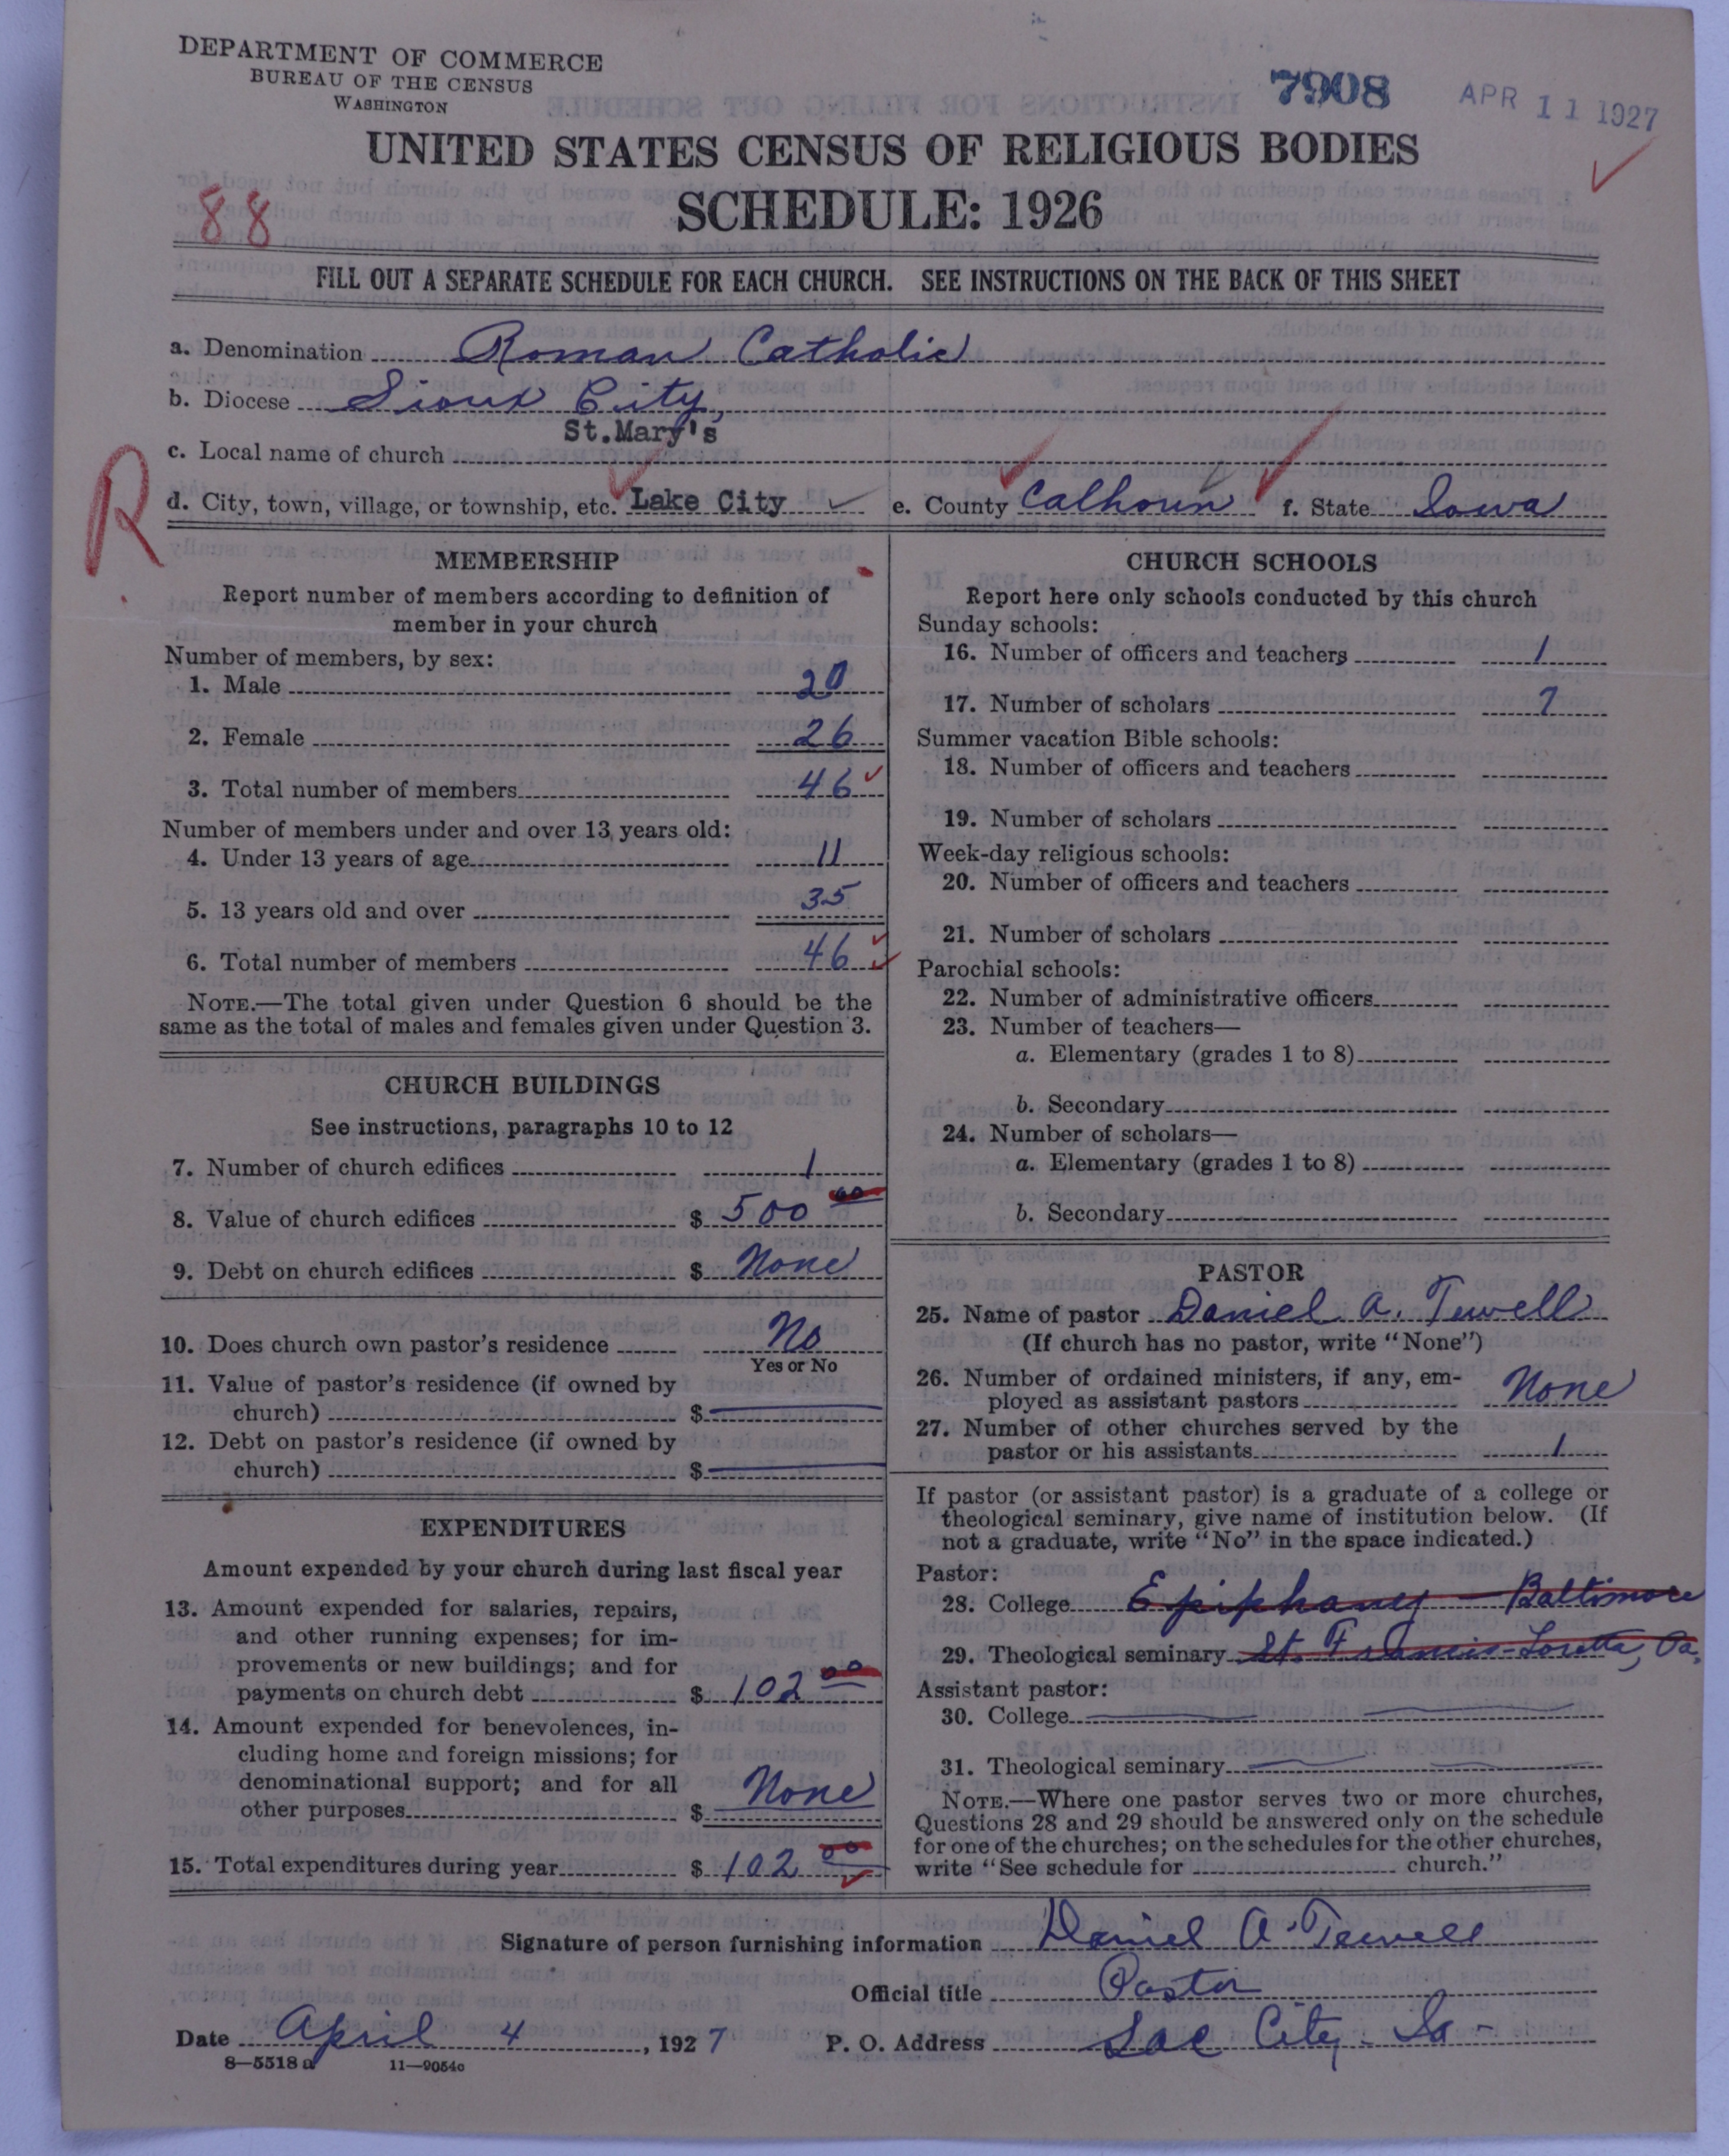 DEPARTMENT OF COMMERCE
BUREAU OF THE CENSUS
WASHINGTON
7908
APR 11 1927
UNITED STATES CENSUS OF RELIGIOUS BODIES
SCHEDULE: 1926
88
FILL OUT A SEPARATE SCHEDULE FOR EACH CHURCH. SEE INSTRUCTIONS ON THE BACK OF THIS SHEET
a. Denomination Roman Catholic
b. Diocese Sioux City,
St.Mary's
c. Local name of church
R
d. City, town, village, or township, etc. Lake City e. County Calhoun f. State Iowa
MEMBERSHIP
Report number of members according to definition of
member in your church
Number of members, by sex:
1. Male 20
2. Female 26
3. Total number of members 46
Number of members under and over 13 years old:
4. Under 13 years of age 11
5. 13 years old and over 35
6. Total number of members 46
NOTE.—The total given under Question 6 should be the
same as the total of males and females given under Question 3.
CHURCH BUILDINGS
See instructions, paragraphs 10 to 12
7. Number of church edifices 1
8. Value of church edifices $ 500 00
9. Debt on church edifices $ None
10. Does church own pastor's residence No
Yes or No
11. Value of pastor's residence (if owned by
church) $
12. Debt on pastor's residence (if owned by
church) $
EXPENDITURES
Amount expended by your church during last fiscal year
13. Amount expended for salaries, repairs,
and other running expenses; for im-
provements or new buildings; and for
payments on church debt $ 102 00
14. Amount expended for benevolences, in-
cluding home and foreign missions; for
denominational support; and for all
other purposes $ None
15. Total expenditures during year $ 102 00
CHURCH SCHOOLS
Report here only schools conducted by this church
Sunday schools:
16. Number of officers and teachers 1
17. Number of scholars 7
Summer vacation Bible schools:
18. Number of officers and teachers
19. Number of scholars
Week-day religious schools:
20. Number of officers and teachers
21. Number of scholars
Parochial schools:
22. Number of administrative officers
23. Number of teachers—
a. Elementary (grades 1 to 8)
b. Secondary
24. Number of scholars—
a. Elementary (grades 1 to 8)
b. Secondary
PASTOR
25. Name of pastor Daniel A. Tewell
(If church has no pastor, write "None")
26. Number of ordained ministers, if any, em-
ployed as assistant pastors None
27. Number of other churches served by the
pastor or his assistants 1
If pastor (or assistant pastor) is a graduate of a college or
theological seminary, give name of institution below. (If
not a graduate, write "No" in the space indicated.)
Pastor:
28. College Epiphany — Baltimore
29. Theological seminary St. Francis-Loretta, Pa.
Assistant pastor:
30. College
31. Theological seminary
NOTE.—Where one pastor serves two or more churches,
Questions 28 and 29 should be answered only on the schedule
for one of the churches; on the schedules for the other churches,
write "See schedule for church."
Signature of person furnishing information Daniel A. Tewell
Official title Pastor
Date April 4, 1927 P. O. Address Sac City - Ia -
8—5518 a 11—9054c